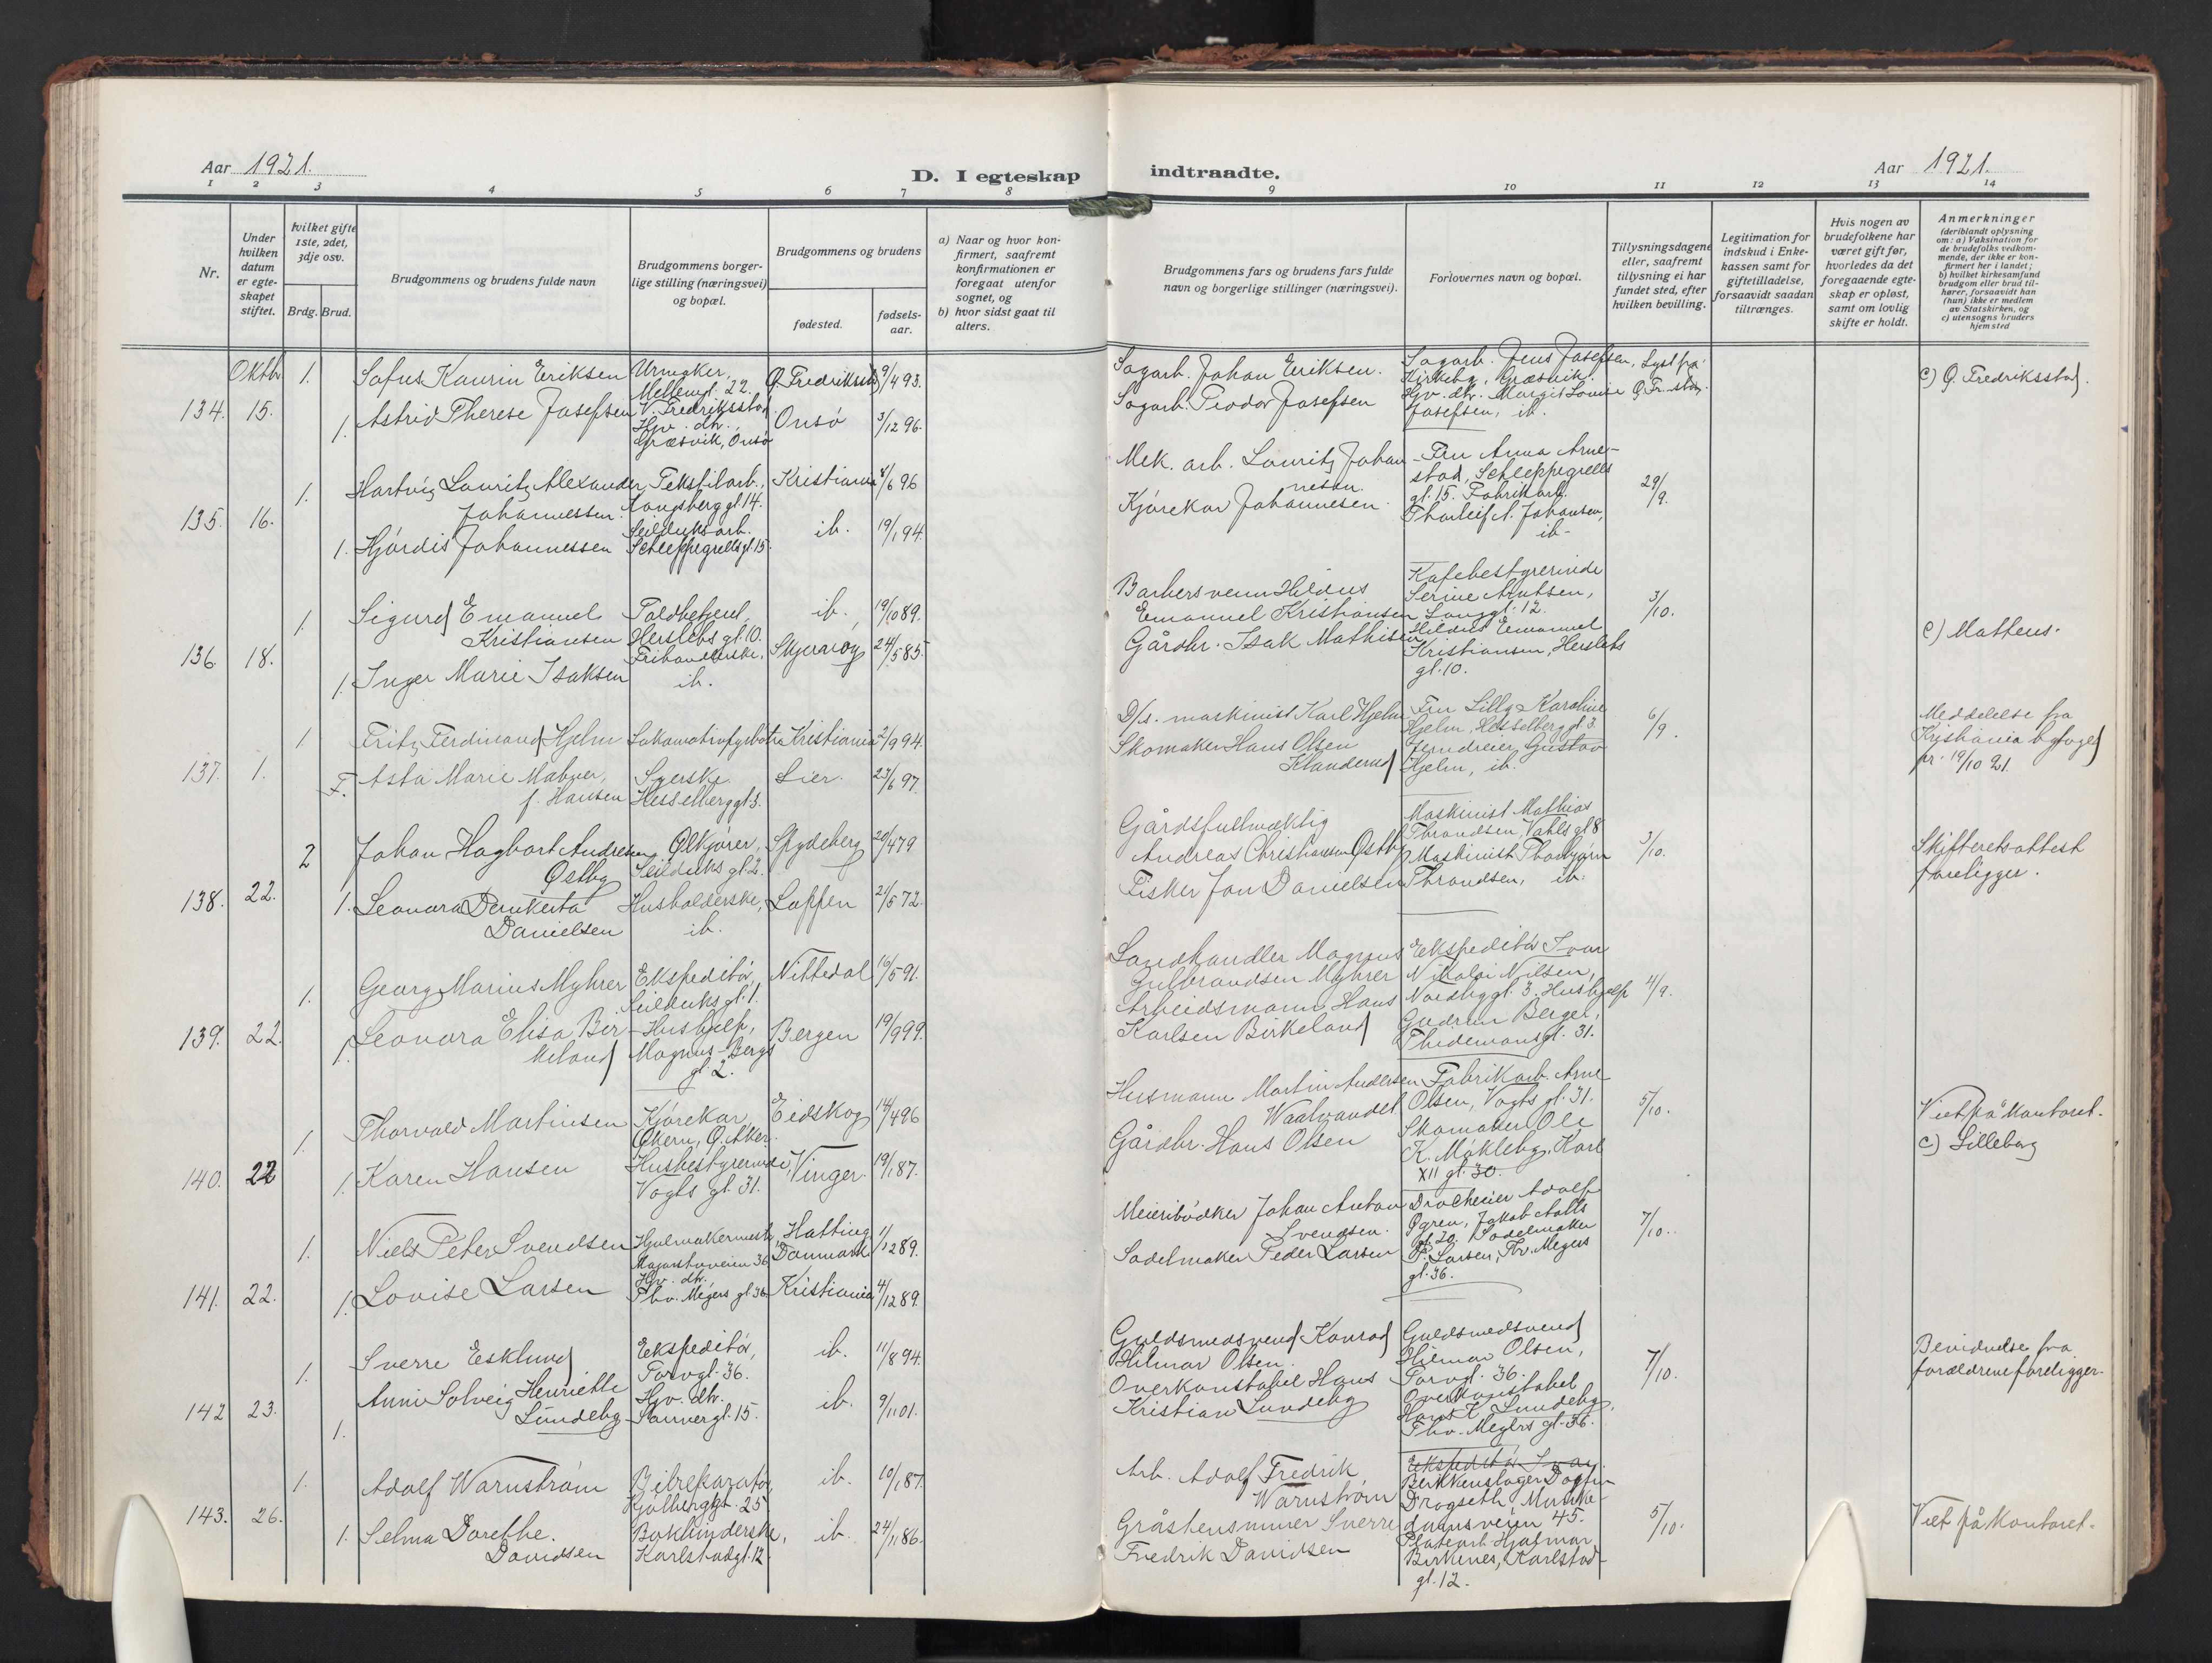 Aar 1921.
D. I egteskap
indtraadte.
Aar 1921.
1 2 3 4 5 6 7 8 9 10 11 12 13 14
Nr.
Under hvilken datum er egteskapet stiftet.
hvilket gifte 1ste, 2det, 3dje osv.
Brdg. Brud.
Brudgommens og brudens fulde navn
Brudgommens borgerlige stilling (næringsvei) og bopæl.
Brudgommens og brudens
fødested.
fødselsaar.
a) Naar og hvor konfirmert, saafremt konfirmationen er foregaat utenfor sognet, og
b) hvor sidst gaat til alters.
Brudgommens fars og brudens fars fulde navn og borgerlige stillinger (næringsvei).
Forlovernes navn og bopæl.
Tillysningsdagene eller, saafremt tillysning ei har fundet sted, efter hvilken bevilling.
Legitimation for indskud i Enkekassen samt for giftetilladelse, forsaavidt saadan tiltrænges.
Hvis nogen av brudefolkene har været gift før, hvorledes da det foregaaende egteskap er opløst, samt om lovlig skifte er holdt.
Anmerkninger (deriblandt oplysning om: a) Vaksination for de brudefolks vedkommende, der ikke er konfirmert her i landet; b) hvilket kirkesamfund brudgom eller brud tilhører, forsaavidt han (hun) ikke er medlem av Statskirken, og c) utensogns bruders hjemsted
Oktb.
134. 15.
1. Sofus Kaurin Eriksen
Urmaker,
22.
V. Fredriksstad
Ø. Fredrikst.
9/4 93.
1. Astrid Therese Josefsen
Hjv. dtr.
Græsvik, Onsø
Onsø
3/12 96.
Sagarb. Johan Eriksen.
Sagarb. Teodor Josefsen
Sagarb. Jens Josefsen,
Kirkeby, Græsvik.
Hjv. dtr. Margit Louise
Josefsen, ib.
Lyst fra
Ø. Fr.stad.
c) Ø. Fredriksstad.
135. 16.
1. Hartvig Lauritz Alexander
Johannessen.
Tekstilarb.,
Kongsberggt. 14.
Kristiania
8/6 96
1. Hjördis Johannessen
Seilduksarb.
Schleppegrellsgt. 15.
ib.
19/1 94.
Mek. arb. Lauritz Johan-
nesen.
Kjørekar Johannesen.
Fru Anna Arne-
stad, Schleppegrells
gt. 15. Fabrikarb.
Thorleif A. Johansen,
ib.
29/9.
136. 18.
1. Sigurd Emanuel
Kristiansen
Toldbetjent,
Herslebs gt. 10.
ib.
19/10 89.
1. Inger Marie Isaksen
Frihandlerske,
ib.
Skjervøy
24/5 85.
Barbersvenn Hildus
Emanuel Kristiansen
Gårdbr. Isak Mathisen
Kafebestyrerinde
Serine Knutsen,
Langgt. 12.
Hildus Emanuel
Kristiansen, Herslebs
gt. 10.
3/10.
c) Matteus.
137. 1.
1 Fritz Ferdinand Hjelm
Lokomotivfyrbøter
Kristiania
2/9 94.
F. Asta Marie
f. Hansen
Syerske
Hesselberggt. 3.
Lier.
23/6 97.
D/s. maskinist Karl Hjelm
Skomaker Hans Olsen
Klanderud
Fru Lilly Karoline
Hjelm, Hesselberg gt. 3.
Jerndreier Gustav
Hjelm, ib.
6/9.
Meddelelse fra
Kristiania byfoged
pr. 19/10 21.
138. 22.
2 Johan Hagbart Andresen
Østby
Ølkjører,
Seilduks gt. 2.
Spydeberg
20/4 79
1. Leonora
Danielsen
Husholderske,
ib.
Loppen
21/5 72.
Gårdsfullmæktig
Andreas Christiansen Østby
Fisker Jon Danielsen
Maskinist Mathias
Thrandsen, Vahls gt 8
Maskinist Thorbjørn
Thrandsen, ib.
3/10.
Skifteretsattest
foreligger.
139. 22.
1. Georg Marius Myhrer
Ekspeditør,
Seilduks gt. 1.
Nittedal
16/5 91.
1. Leonora Elisa Bir-
keland
Hushjelp,
Magnus Bergs
gt. 2.
Bergen
19/9 99.
Landhandler Magnus
Gulbrandsen Myhrer
Arbeidsmann Hans
Karlsen Birkeland
Ekspeditør Ivar
Nikolai Nilsen,
Nordbygt. 3. Hushjelp
Gudrun Berger,
Thidemansgt. 31.
4/9.
140. 22
1. Thorvald Martinsen
Kjørekar,
Økern, Ø. Aker.
Eidskog
14/4 96
1. Karen Hansen
Husbestyrerinde,
Vogts gt. 31.
Vinger.
19/1 87.
Husmann Martin Andersen
Gårdbr. Hans Olsen
Fabrikarb. Arne
Olsen, Vogts gt. 31.
Skomaker Ole
K. Mökleby, Karl
XII gt. 30.
5/10.
Viet på kontoret.
c) Lilleborg
141. 22.
1. Niels Peter Svendsen
Hjulmakermester,
Majorstuveien 36
Hatting,
Danmark
1/12 89.
1. Lovise Larsen
Hjv. dtr.
Thv. Meyers gt. 36
Kristiania
4/12 89.
Meieribödker Johan Anton
Svendsen.
Sadelmaker Peder Larsen
Adolf
Ögren, Jakob Aalls
gt. 20. Sadelmaker
P. Larsen, Thv. Meyers
gt. 36.
7/10.
142 23.
1. Sverre Esklund
Ekspeditør,
Torvgt. 36.
ib.
11/8 94.
1. Anni Solveig Henriette
Lundeby
Hjv. dtr.
Sannergt. 15.
ib.
9/1 01.
Guldsmedsvend Konrad
Hilmar Olsen.
Overkonstabel Hans
Kristian Lundeby
Guldsmedsvend
Hilmar Olsen,
Torvgt. 36.
Overkonstabel
Hans K. Lundeby,
Thv. Meyers gt. 36.
7/10.
Bevidnelse fra
forældrene foreligger.
143. 26.
1. Adolf Warnström
Bilreparatør,
Hjølberggt. 25
ib.
10/1 87.
1. Selma Dorethe
Davidsen
Bokbinderske,
Karlstadgt. 12.
ib.
24/1 86.
Arb. Adolf Fredrik
Warnström
Gråstensmurer Sverre
Fredrik Davidsen
Ekspeditør Ivar
Blikkenslager Dagfin
Drogseth,
45.
Platearb. Hjalmar
Birkenes, Karlstad-
gt. 12.
5/10.
Viet på kontoret.